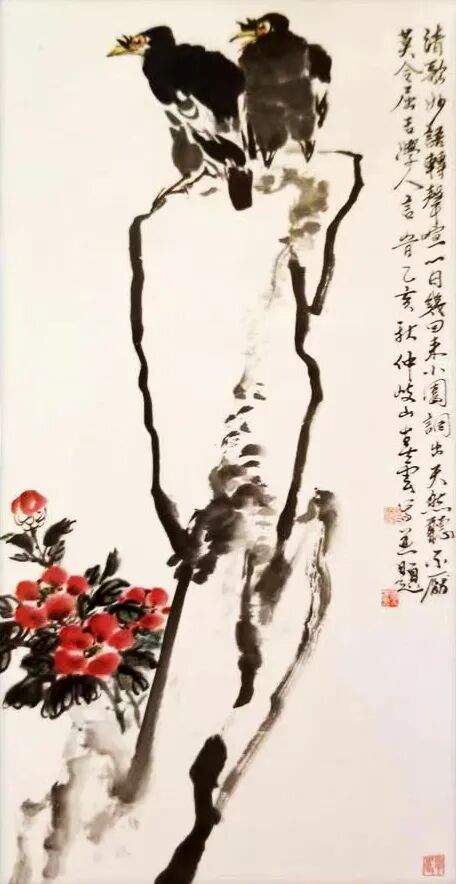 清歌妙語轉聲喧一日幾回來小園調出天然聽不厭
莫令屈舌學人言 乙亥秋仲岐山袁雲写並題